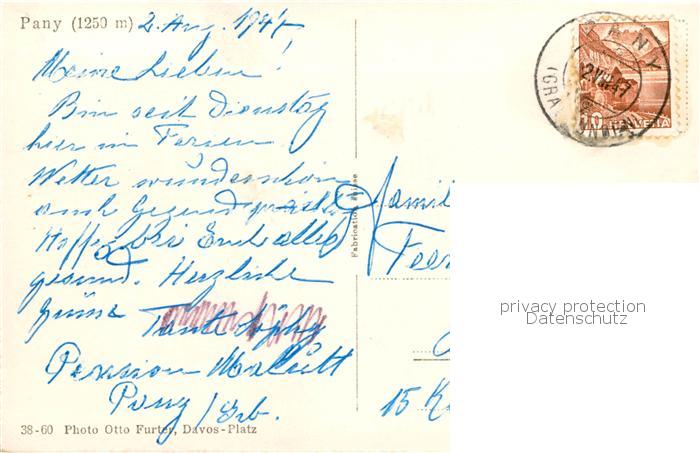 Pany (1250 m) 2. Aug. 1947
Meine Lieben!
Bin seit Dienstag
hier in Ferien
Wetter wunderschön
auch Gegend
Hoffe bei Euch alles
gesund. Herzliche
Grüsse Tante
Pension
Pany / Grb.
38-60 Photo Otto Furter, Davos-Platz
Fabrication Suisse
PANY
2.VIII.47
(GRAUBÜNDEN)
10 HELVETIA
Famil
15
privacy protection
Datenschutz